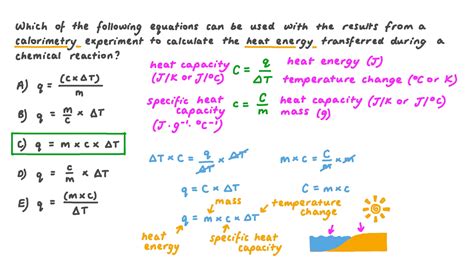 Which of the following equations can be used with the results from a
calorimetry experiment to calculate the heat energy transferred during a
chemical reaction?
A) q = (c×ΔT) / m
B) q = m/c × ΔT
C) q = m × c × ΔT
D) q = c/m × ΔT
E) q = (m×c) / ΔT
heat capacity
(J/K or J/°C)
C = q/ΔT
heat energy (J)
temperature change (°C or K)
specific heat
capacity
(J·g⁻¹·°C⁻¹)
c = C/m
heat capacity (J/K or J/°C)
mass (g)
ΔT × C = q/ΔT × ΔT
q = C × ΔT
m × c = C/m × m
C = m × c
mass
q = m × c × ΔT
temperature
change
heat
energy
specific heat
capacity